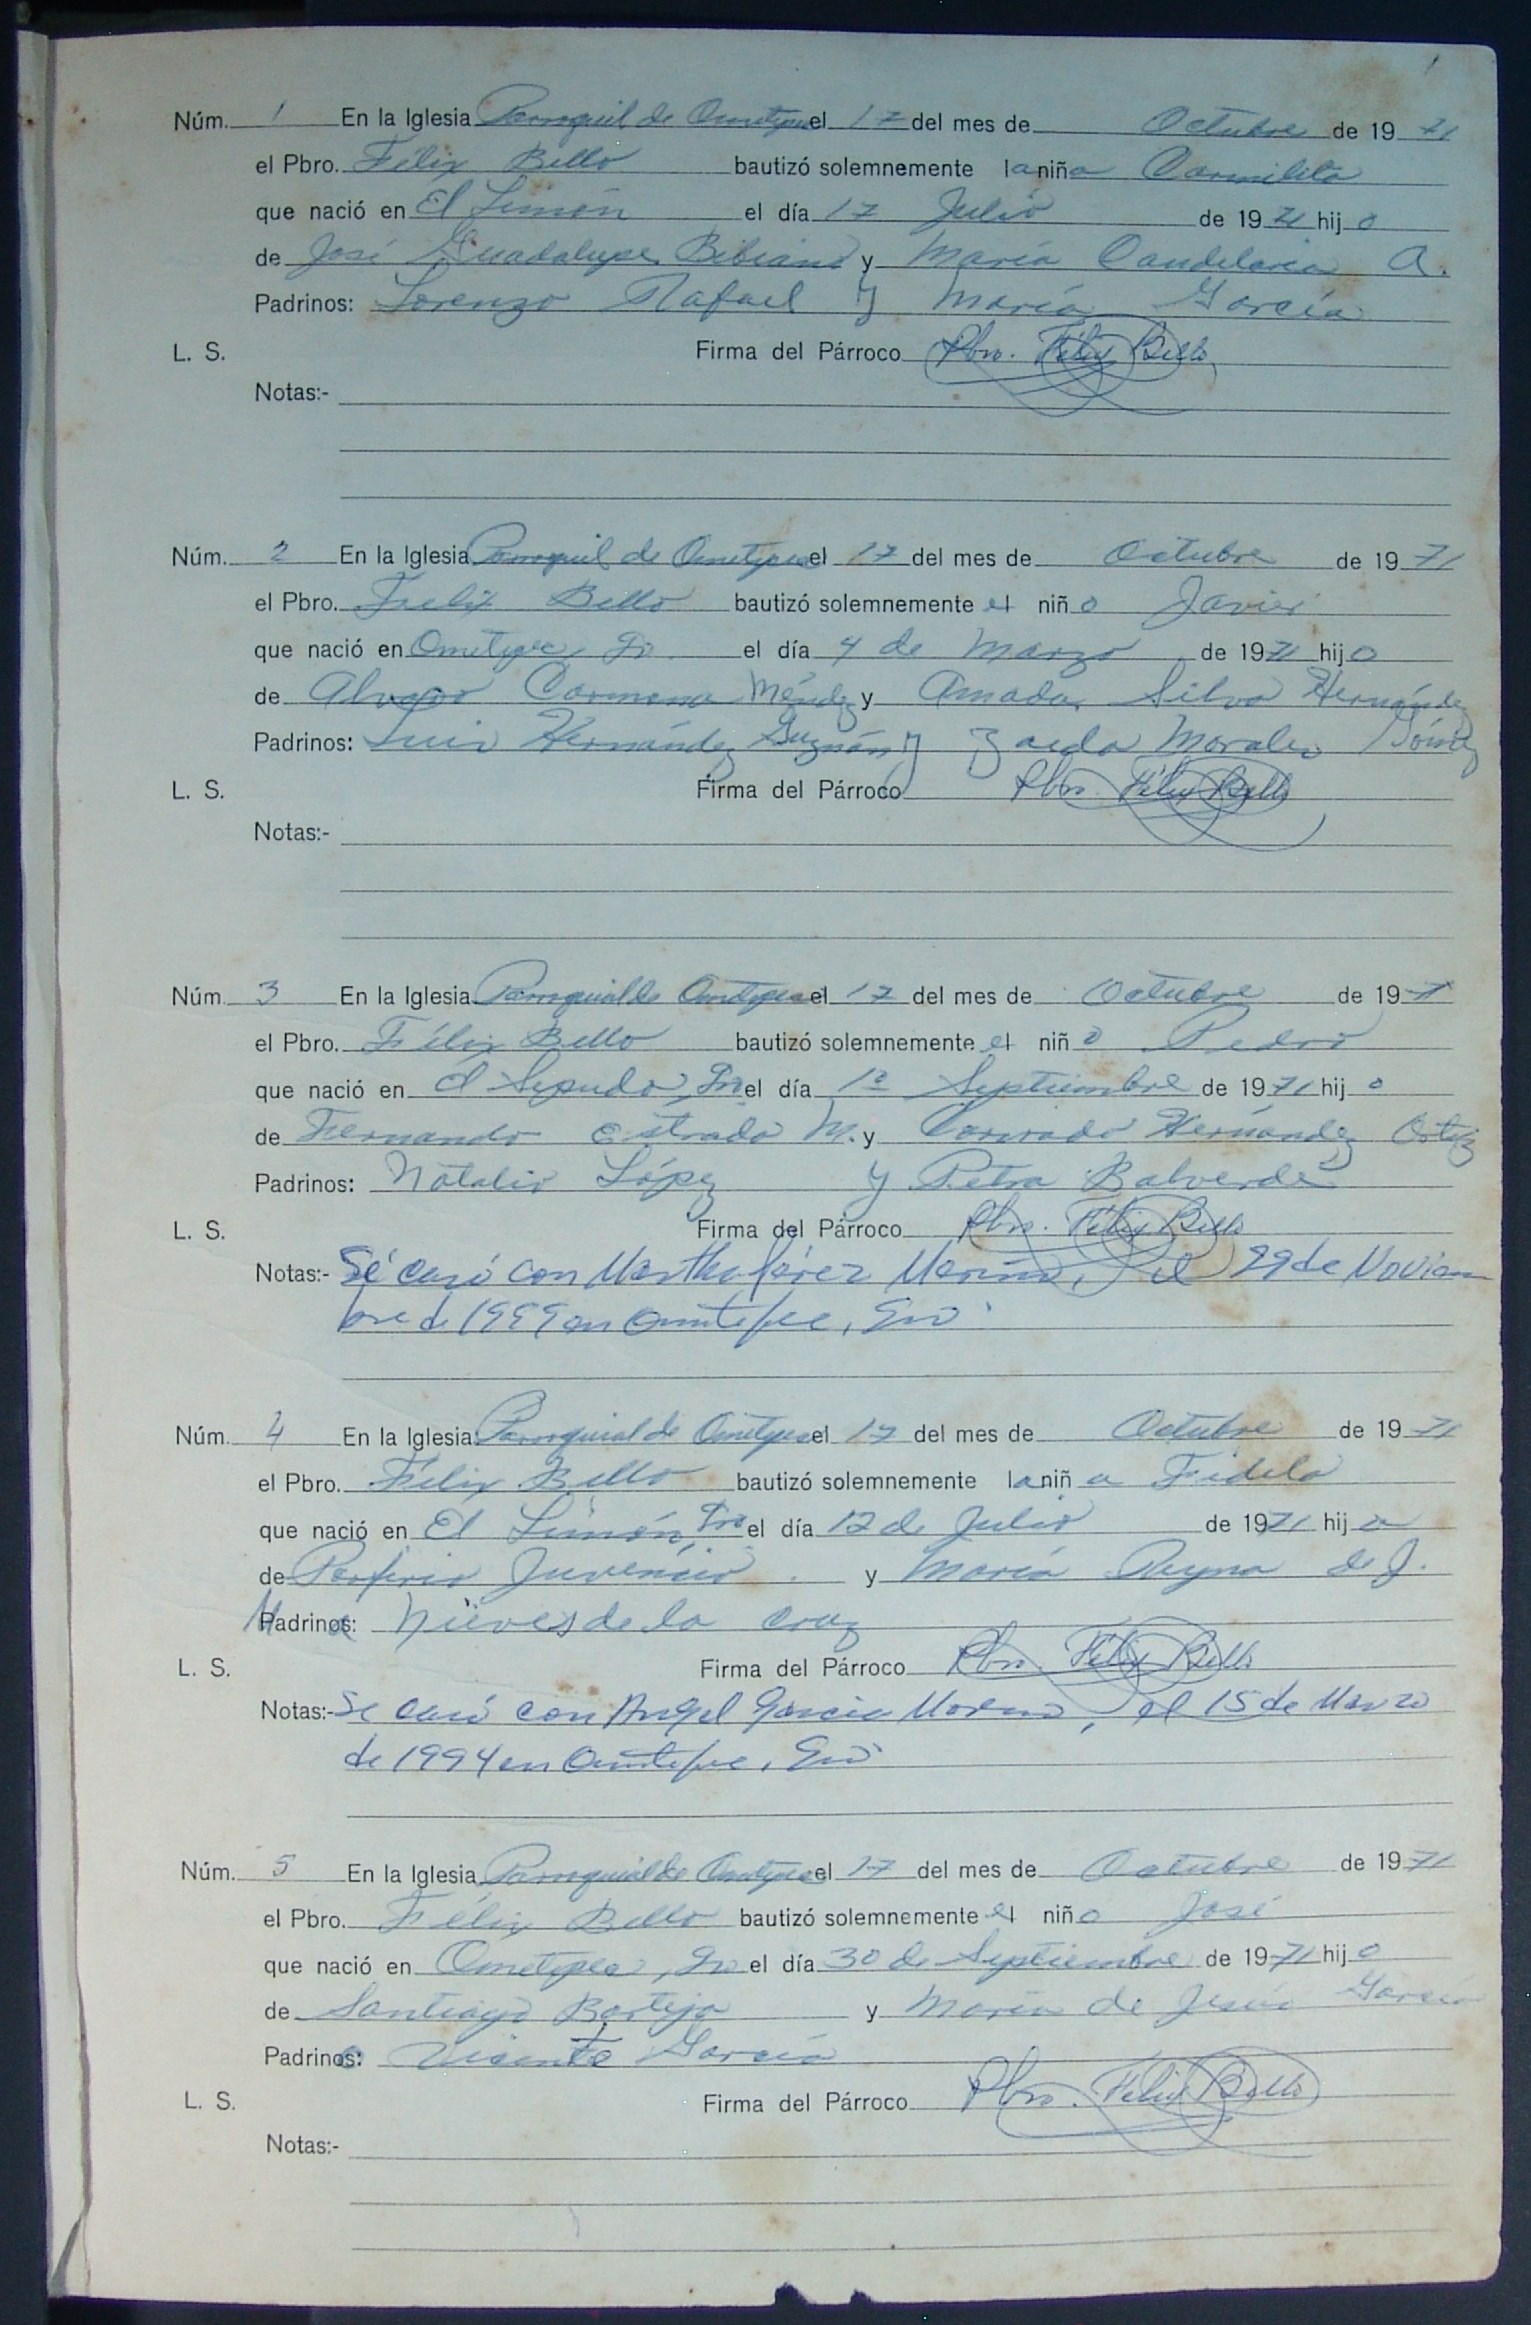 1
Núm. 1 En la Iglesia Parroquil de Ometepec el 17 del mes de Octubre de 19 71
el Pbro. Félix Bello bautizó solemnemente la niña Carmelita
que nació en El Limón el día 17 Julio de 1971 hijo
de José Guadalupe Bibiano y María Candelaria A.
Padrinos: Lorenzo Rafael y María García
L. S. Firma del Párroco Pbro. Félix Bello
Notas:-
Núm. 2 En la Iglesia Parroquil de Ometepec el 17 del mes de Octubre de 19 71
el Pbro. Felix Bello bautizó solemnemente el niño Javier
que nació en Ometepec, Gro. el día 4 de Marzo de 1971 hijo
de Alvaro Carmona Méndez y Amada Silva Hernández
Padrinos: Luis Hernández Guzmán y Zaida Morales Gómez
L. S. Firma del Párroco Pbro. Félix Bello
Notas:-
Núm. 3 En la Iglesia Parroquial de Ometepec el 17 del mes de Octubre de 1971
el Pbro. Félix Bello bautizó solemnemente el niño Pedro
que nació en el Gro el día 1º Septiembre de 1971 hijo
de Fernando Estrada M. y Hernández Ortiz
Padrinos: Natalio López y Petra Balverde
L. S. Firma del Párroco Pbro. Félix Bello
Notas:- Se casó con Martha Merino, el 29 de Noviem
bre de 1999 en Ometepec, Gro.
Núm. 4 En la Iglesia Parroquial de Ometepec el 17 del mes de Octubre de 1971
el Pbro. Félix Bello bautizó solemnemente la niña Fidela
que nació en El Limón, Gro el día 12 de Julio de 1971 hija
de Porfirio Juvencio y María Reyna de J.
Madrina: Nieves de la Cruz
L. S. Firma del Párroco Pbro. Félix Bello
Notas:- Se casó con Angel García Moreno, el 15 de Marzo
de 1994 en Ometepec, Gro.
Núm. 5 En la Iglesia Parroquial de Ometepec el 17 del mes de Octubre de 1971
el Pbro. Félix Bello bautizó solemnemente el niño José
que nació en Ometepec, Gro el día 30 de Septiembre de 1971 hijo
de Santiago y María de Jesús García
Padrino: Vicente García
L. S. Firma del Párroco Pbro. Félix Bello
Notas:-